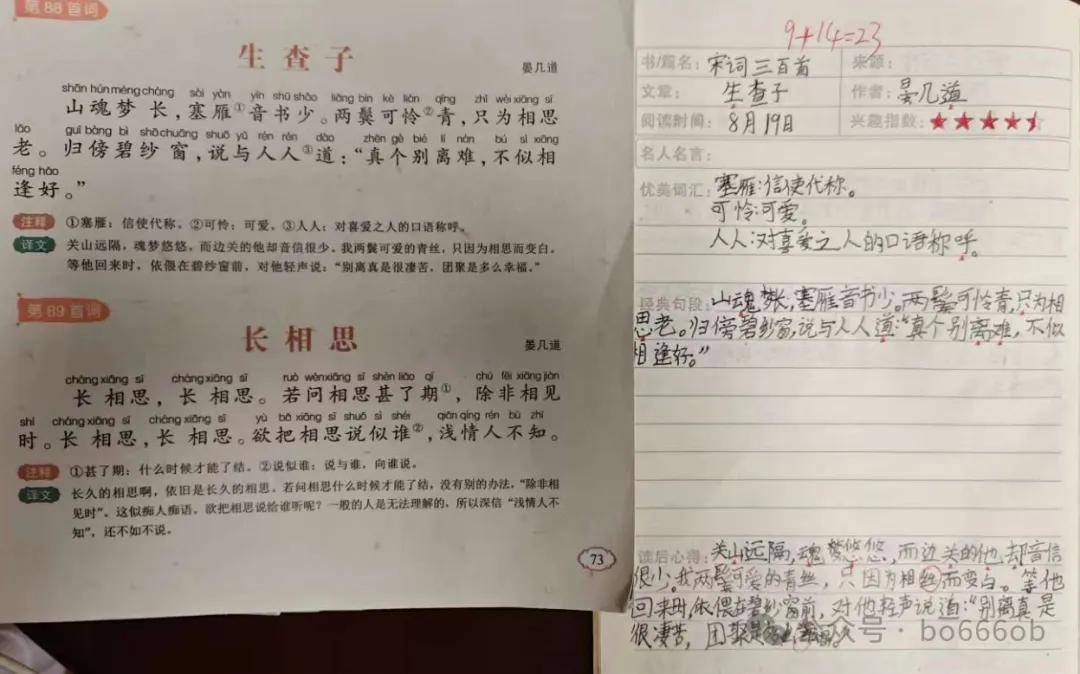 第88首词
生查子
晏几道
shān hún mèng cháng sài yàn yīn shū shǎo liǎng bìn kě lián qīng zhǐ wèi xiāng sī
山魂梦长，塞雁①音书少。两鬓可怜②青，只为相思
lǎo guī bàng bì shā chuāng shuō yǔ rén rén dào zhēn gè bié lí nán bú sì xiāng
老。归傍碧纱窗，说与人人③道：“真个别离难，不似相
féng hǎo
逢好。”
注释 ①塞雁：信使代称。②可怜：可爱。③人人：对喜爱之人的口语称呼。
译文 关山远隔，魂梦悠悠，而边关的他却音信很少。我两鬓可爱的青丝，只因为相思而变白。
等他回来时，依偎在碧纱窗前，对他轻声说：“别离真是很凄苦，团聚是多么幸福。”
第89首词
长相思
晏几道
cháng xiāng sī cháng xiāng sī ruò wèn xiāng sī shèn liǎo qī chú fēi xiāng jiàn
长相思，长相思。若问相思甚了期①，除非相见
shí cháng xiāng sī cháng xiāng sī yù bǎ xiāng sī shuō sì shéi qiǎn qíng rén bù zhī
时。长相思，长相思。欲把相思说似谁②，浅情人不知。
注释 ①甚了期：什么时候才能了结。②说似谁：说与谁，向谁说。
译文 长久的相思啊，依旧是长久的相思。若问相思什么时候才能了结，没有别的办法，“除非相
见时”。这似痴人痴语。欲把相思说给谁听呢？一般的人是无法理解的，所以深信“浅情人不
知”，还不如不说。
73
9+14=23
书/篇名：宋词三百首 来源：
文章：生查子 作者：晏几道
阅读时间：8月19日 兴趣指数：
名人名言：
优美词汇：塞雁：信使代称。
可怜：可爱。
人人：对喜爱之人的口语称呼。
经典句段：山魂梦长，塞雁音书少。两鬓可怜青，只为相
思老。归傍碧纱窗，说与人人道：“真个别离难，不似
相逢好。”
读后心得：关山远隔，魂梦悠悠，而边关的他，却音信
很少。我两鬓可爱的青丝，只因为相丝而变白。等他
回来时，依偎在碧纱窗前，对他轻声说道：“别离真是
很凄苦，团聚是
公众号 · bo666ob